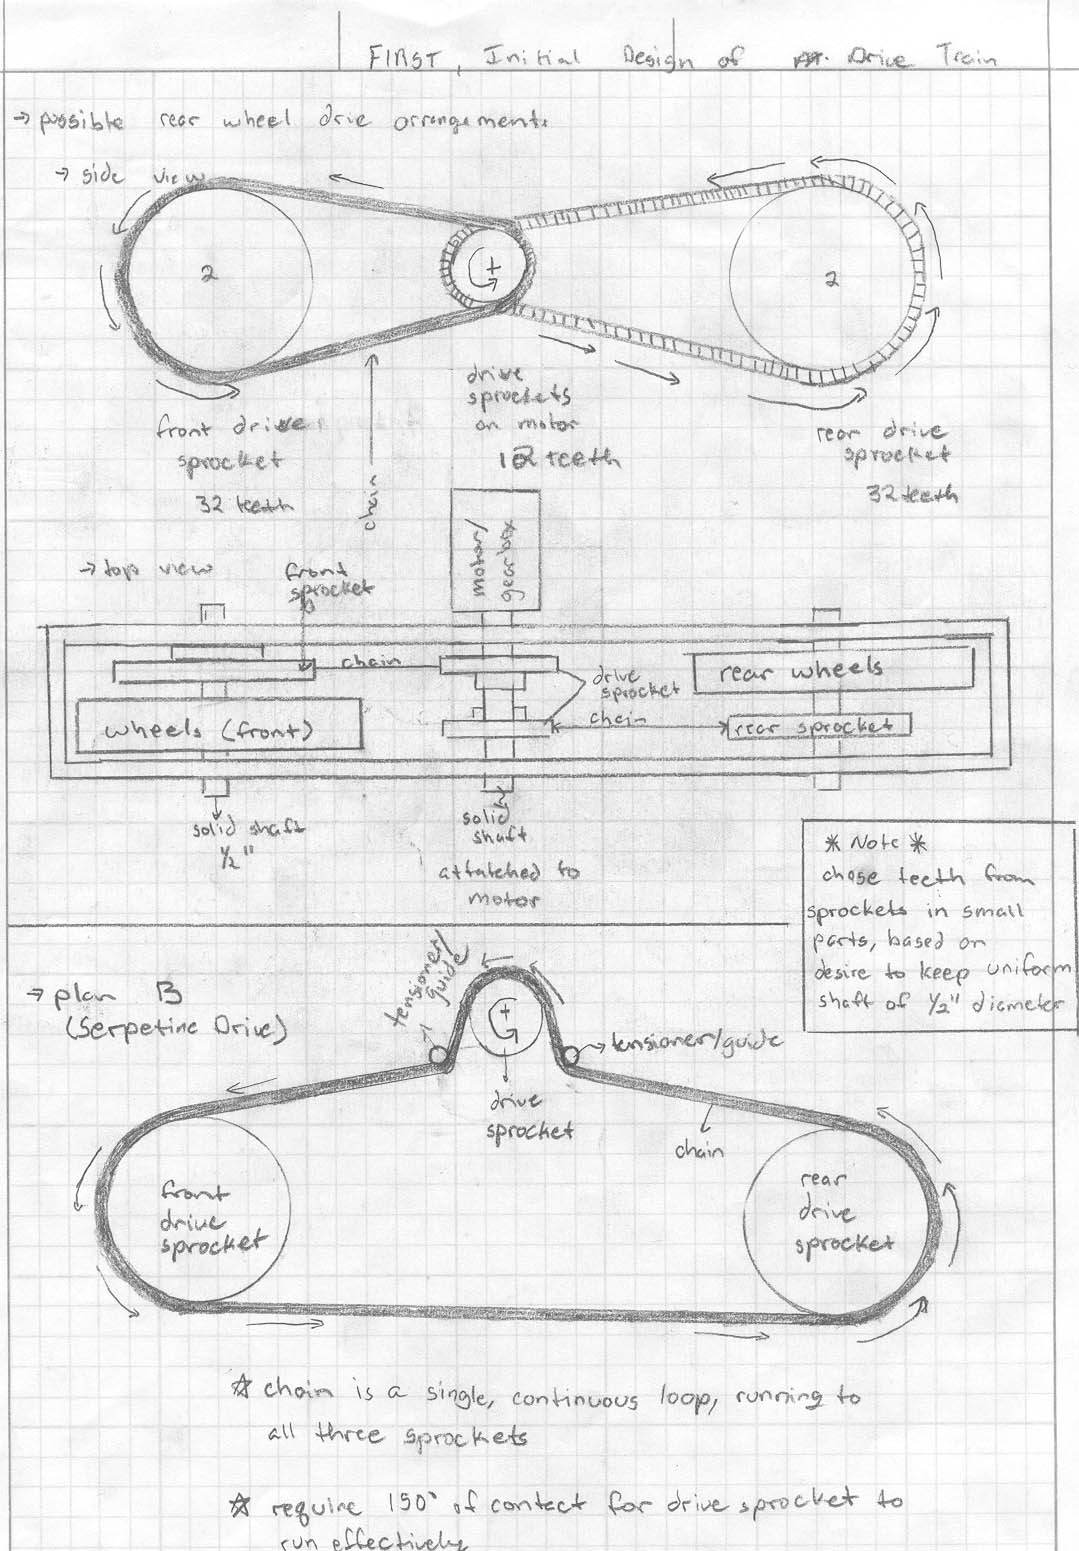 FIRST, Initial Design of Drive Train
→ possible rear wheel drive arrangements
→ side view
2
+
2
front drive
sprocket
32 teeth
chain
drive
sprockets
on motor
12 teeth
rear drive
sprocket
32 teeth
→ top view
front
sprocket
motor/
gearbox
chain
drive
sprocket
chain
rear wheels
wheels (front)
rear sprocket
solid shaft
1/2"
solid
shaft
attatched to
motor
* Note *
chose teeth from
sprockets in small
parts, based on
desire to keep uniform
shaft of 1/2" diameter
→ plan B
(Serpetine Drive)
tensioner/
guide
+
→tensioner/guide
drive
sprocket
chain
front
drive
sprocket
rear
drive
sprocket
☆ chain is a single, continuous loop, running to
all three sprockets
☆ require 150° of contact for drive sprocket to
run effectively